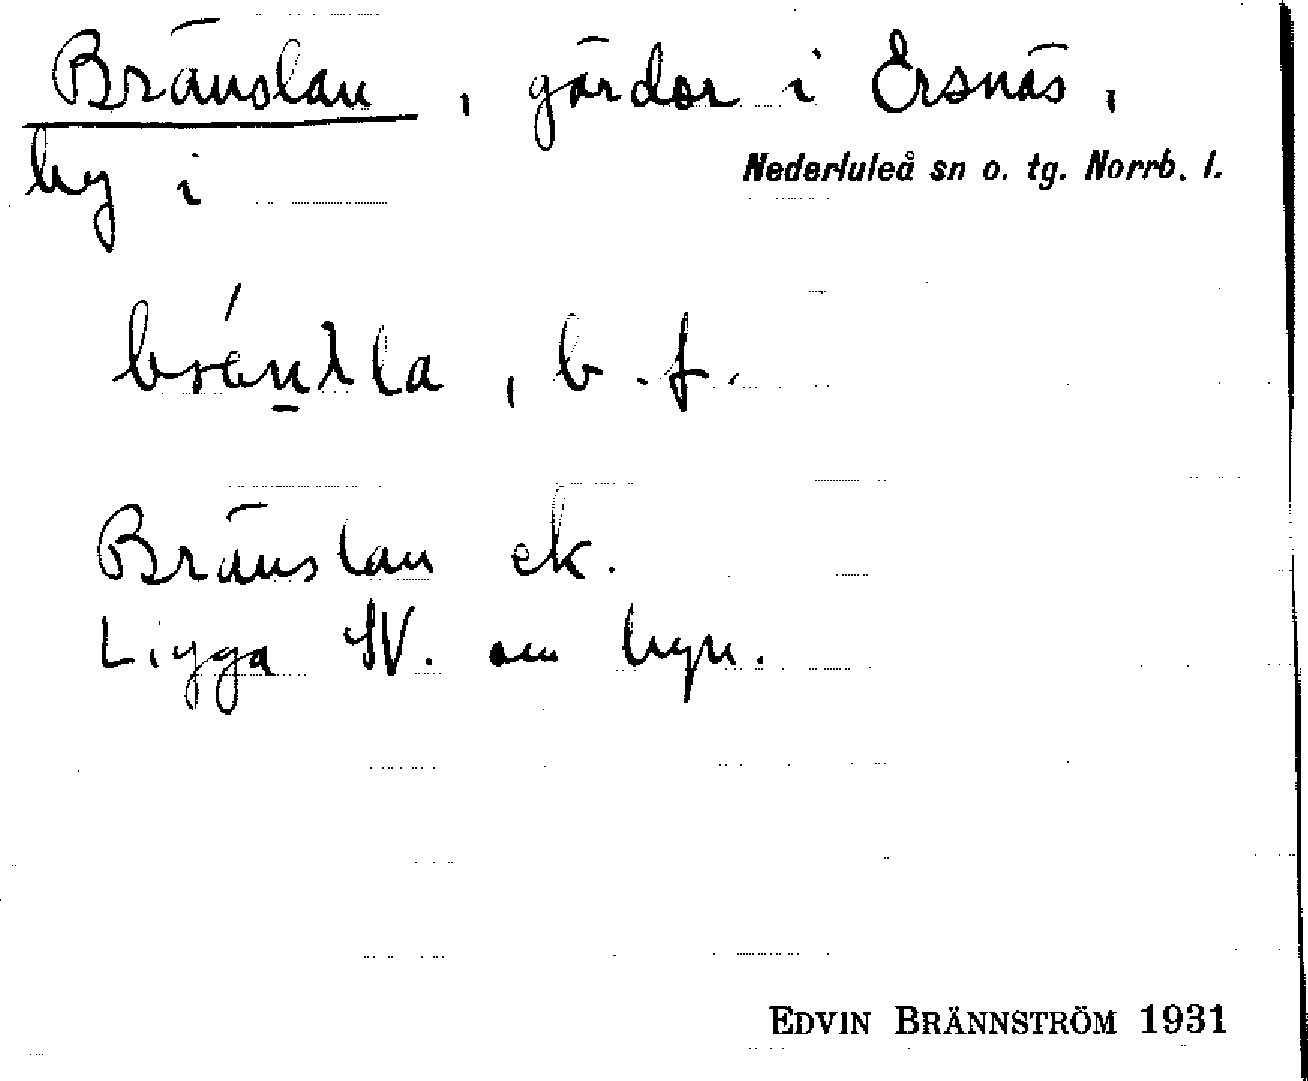 Bränslan, gårdar i Ersnäs,
by i Nederluleå sn o. tg. Norrb. l.
b. f.
Bränslan ek.
Ligga SV. om byn.
EDVIN BRÄNNSTRÖM 1931